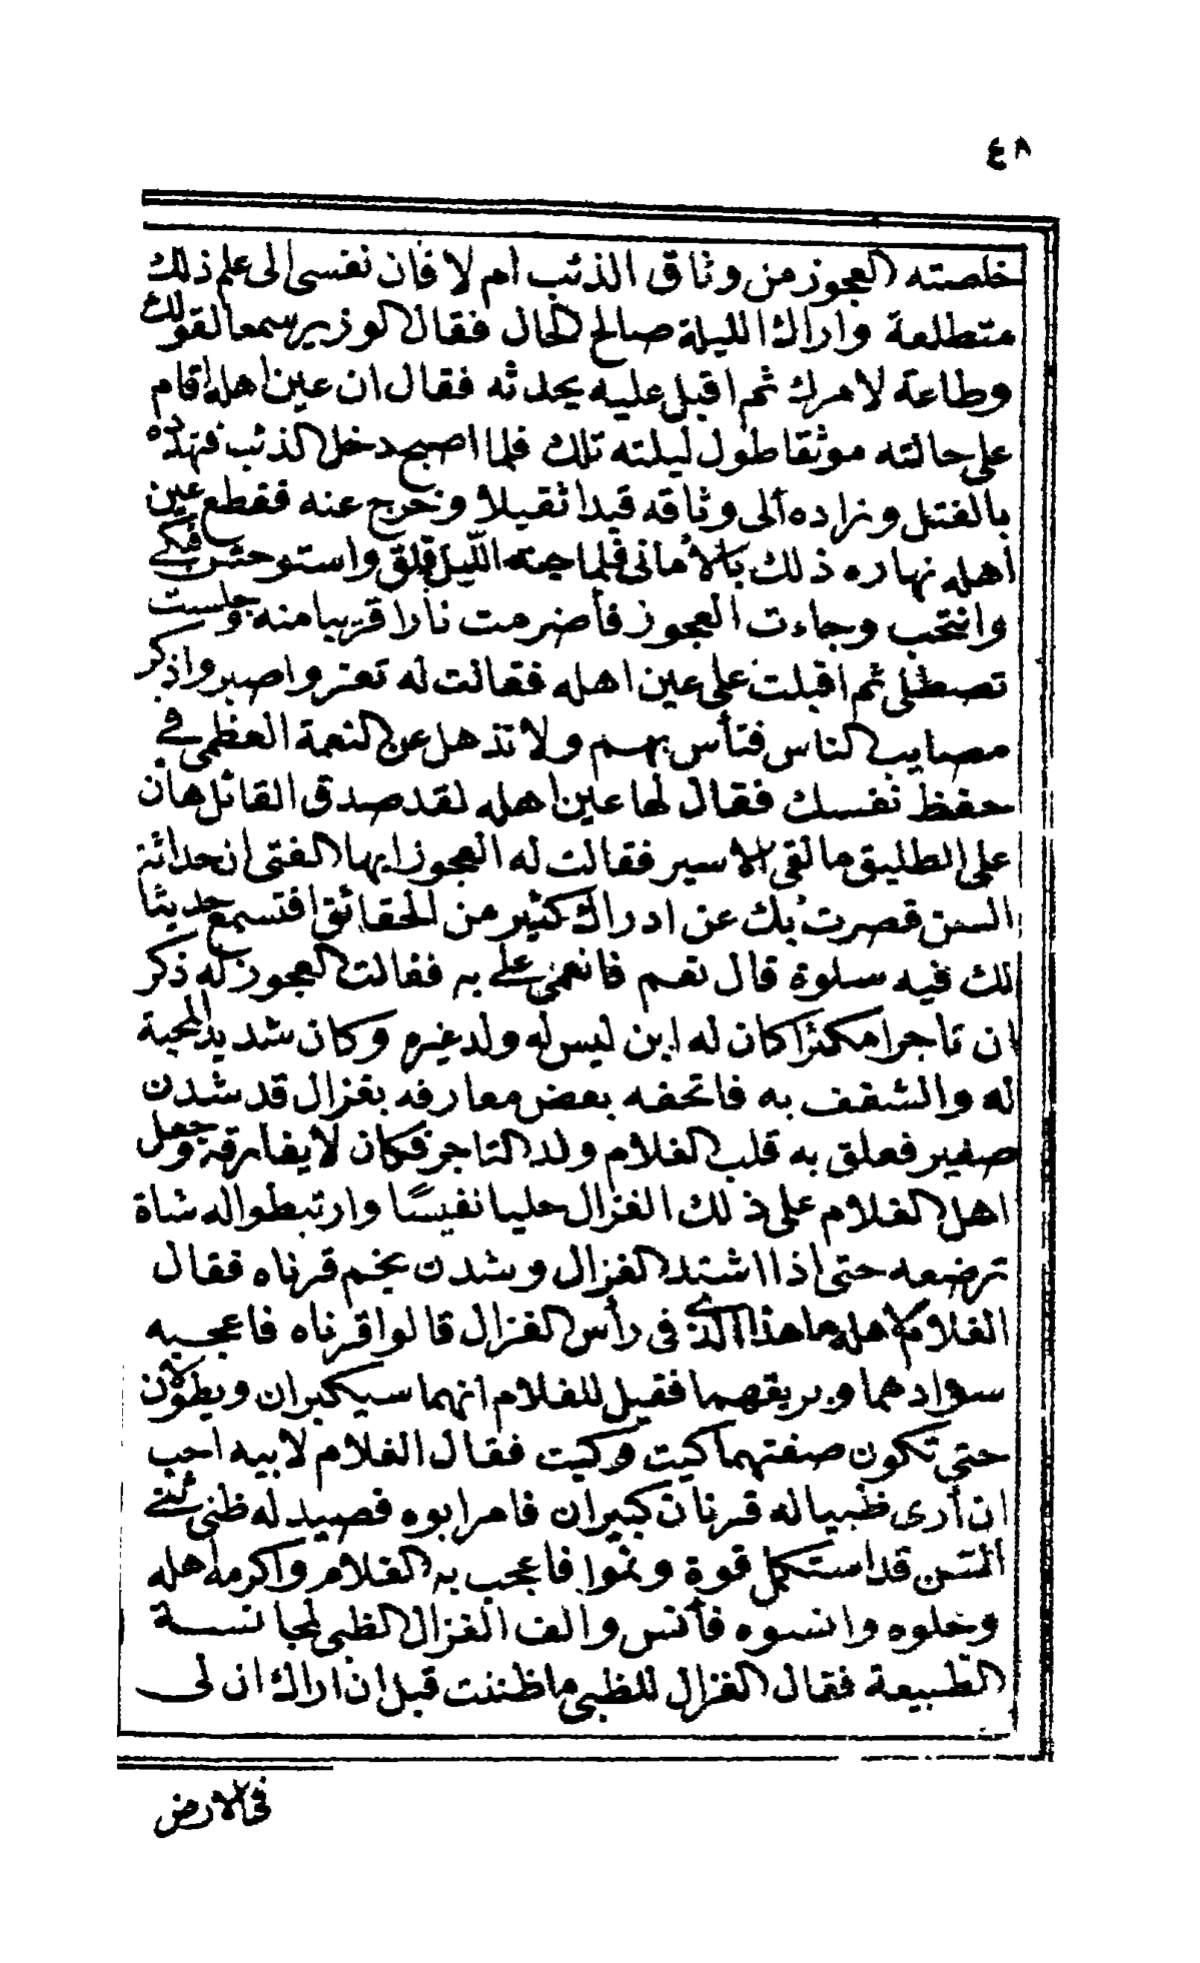 ٤٨
خلصته العجوز من وثاق الذئب أم لا فان نفسى الى علم ذلك
متطلعة واراك الليلة صالح الحال فقال الوزير سمعا لقولك
وطاعة لامرك ثم اقبل عليه يحدثه فقال ان عين اهله اقام
على حالته موثقا طول ليلته تلك فلما اصبح دخل الذئب فهدده
بالقتل وزاده ألى وثاقه قيدا ثقيلا وخرج عنه فقطع عين
أهله نهاره ذلك بالأمانى فلما جنه الليل قلق واستوحش فبكى
وانتحب وجاءت العجوز فأضرمت نارا قريبا منه وجلست
تصطلى ثم اقبلت على عين اهله فقالت له تعز واصبر واذكر
مصايب الناس فتأس بهم ولا تذهل عن النعمة العظمى فى
حفظ نفسك فقال لها عين اهله لقد صدق القائل هان
على الطليق ما لقى الاسير فقالت له العجوز ايها الفتى ان حداثة
السن قصرت بك عن ادراك كثير من الحقائق افتسمع حديثا
لك فيه سلوة قال نعم فانعمى على به فقالت العجوز له ذكر
ان تاجرا مكثرا كان له ابن ليس له ولد غيره وكان شديد المحبة
له والشغف به فاتحفه بعض معارفه بغزال قد شدن
صغير فعلق به قلب الغلام ولد التاجر فكان لا يفارقه وجعل
اهل الغلام على ذلك الغزال حليا نفيسًا وارتبطوا له شاة
ترضعه حتى اذا اشتد الغزال وشدن نجم قرناه فقال
الغلام لاهله ما هذا الذى فى رأس الغزال قالوا قرناه فاعجبه
سوادهما وبريقهما فقيل للغلام انهما سيكبران ويطولان
حتى تكون صفتهما كيت وكيت فقال الغلام لابيه احب
ان أرى ظبيا له قرنان كبيران فامر ابوه فصيد له ظبى ثنى
السن قد استكمل قوة ونموا فاعجب به الغلام واكرمه اهله
وحلوه وانسوه فأنس والف الغزال الظبى لمجانسة
الطبيعة فقال الغزال للظبى ما ظننت قبل ان اراك ان لى
فى الارض